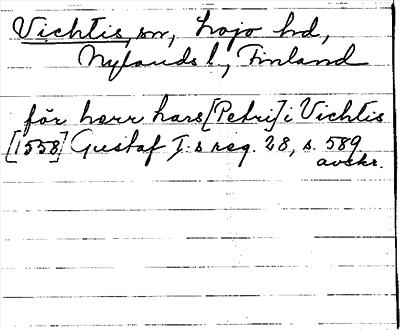 Vichtis, sn, Lojo hd,
Nylands l., Finland
för herr Lars [Petri] i Vichtis
[1558] Gustaf I:s reg. 28, s. 589
avskr.